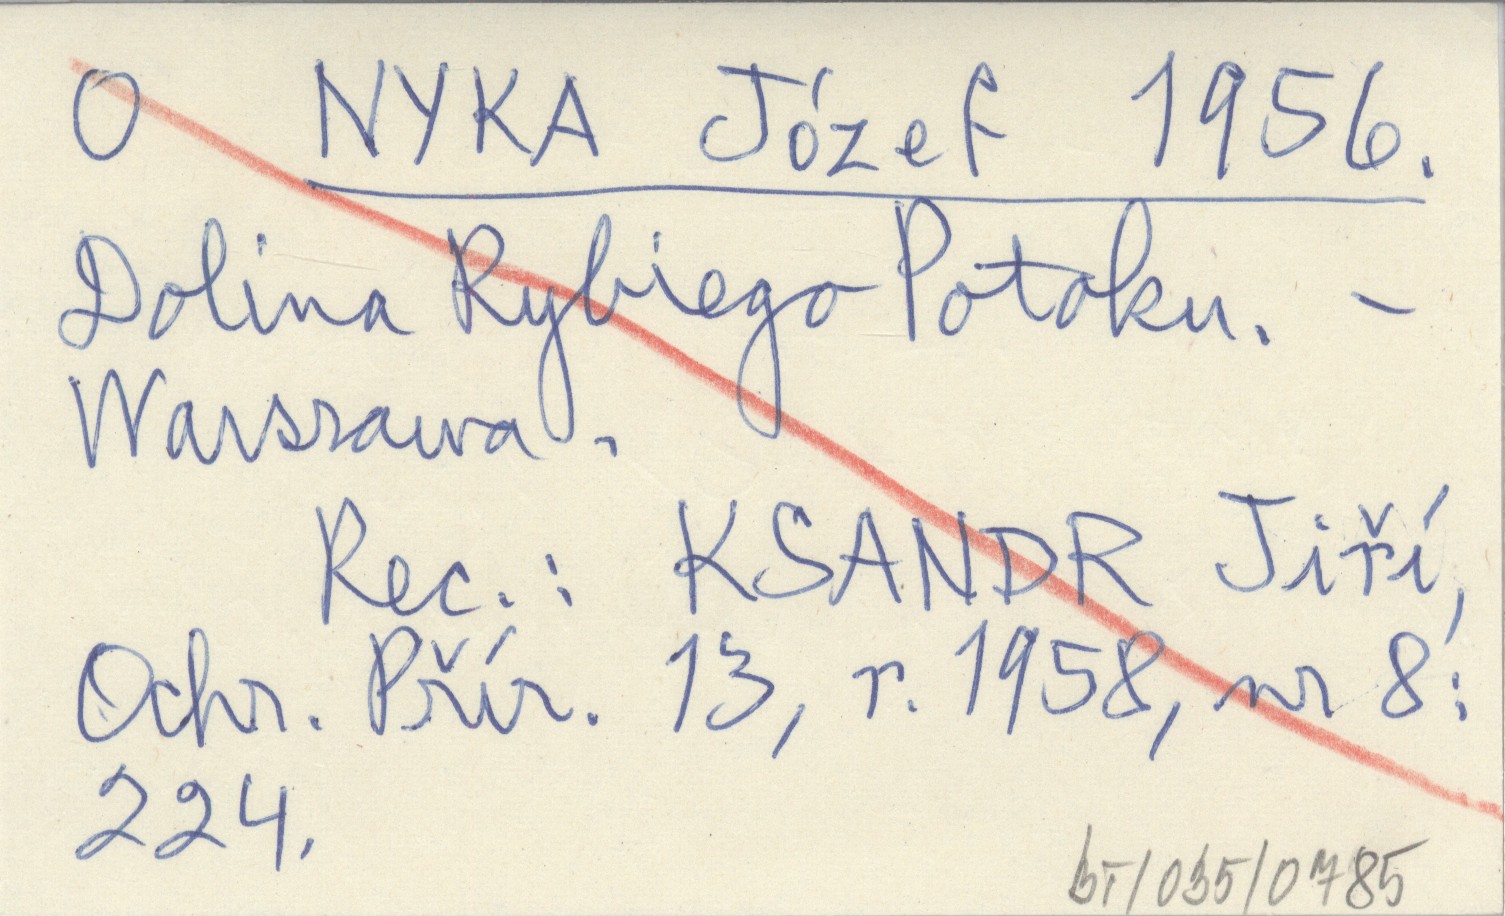 O NYKA Józef 1956.
Dolina Rybiego Potoku. -
Warszawa.
Rec.: KSANDR Jiří,
Ochr. Přír. 13, r. 1958, nr 8:
224.
BT/035/0785